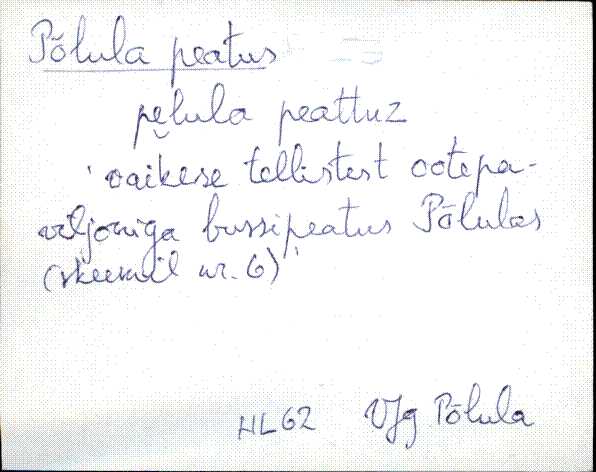 Põlula peatus
pe̮lula peattuz
'väikese tellistest ootepa-
viljoniga bussipeatus Põlulas
(skeemil nr. 6)'
HL 62 VJg Põlula